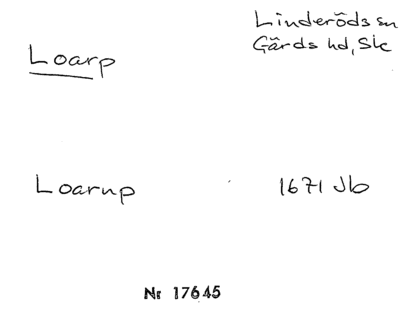 Linderöds sn
Gärds hd, Sk
Loarp
Loarup
1671 Jb
Nr 17645